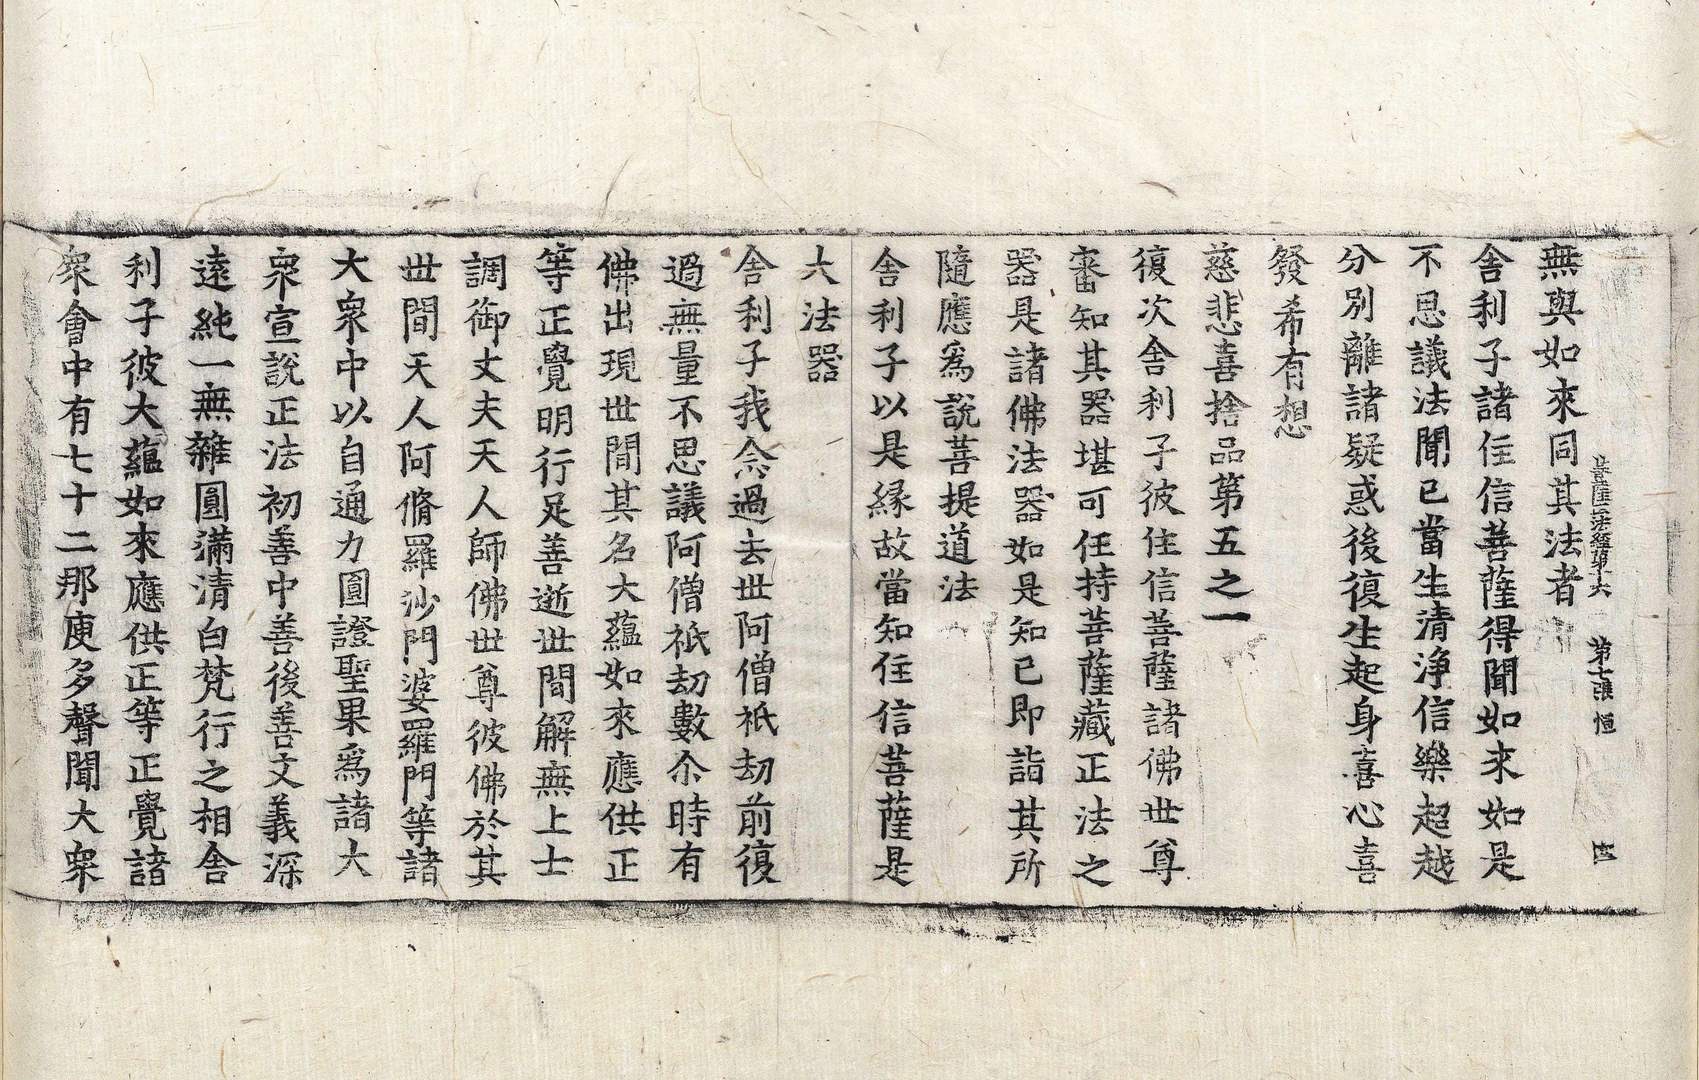 菩薩藏經第六 第七張 恒 四
無與如來同其法者
舍利子諸住信菩薩得聞如來如是
不思議法聞已當生清淨信樂超越
分別離諸疑惑後復生起身喜心喜
發希有想
慈悲喜捨品第五之一
復次舍利子彼住信菩薩諸佛世尊
審知其器堪可任持菩薩藏正法之
器是諸佛法器如是知已即詣其所
隨應爲說菩提道法
舍利子以是緣故當知住信菩薩是
大法器
舍利子我念過去世阿僧祇劫前復
過無量不思議阿僧祇劫數尒時有
佛出現世間其名大蘊如來應供正
等正覺明行足善逝世間解無上士
調御丈夫天人師佛世尊彼佛於其
世間天人阿脩羅沙門婆羅門等諸
大衆中以自通力圓證聖果爲諸大
衆宣說正法初善中善後善文義深
遠純一無雜圓滿清白梵行之相舍
利子彼大蘊如來應供正等正覺諸
衆會中有七十二那庾多聲聞大衆